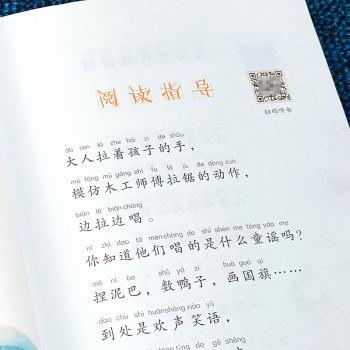 阅读指导
扫码听书
dà rén lā zhe hái zi de shǒu
大人拉着孩子的手，
mó fǎng mù gōng shī fu lā jù de dòng zuò
模仿木工师傅拉锯的动作，
biān lā biān chàng
边拉边唱。
nǐ zhī dào tā men chàng de shì shén me tóng yáo ma
你知道他们唱的是什么童谣吗？
niē ní ba shǔ yā zi huà guó qí
捏泥巴，数鸭子，画国旗……
dào chù shì huān shēng xiào yǔ
到处是欢声笑语，